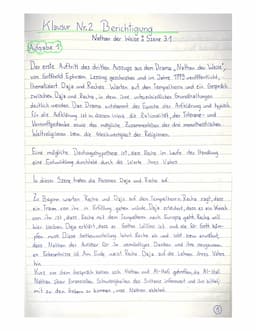 Klausur Nr.2 Berichtigung
Nathan der Weise: Szene 3.1
Aufgabe 1)
Der erste Auftritt des dritten Aufzugs aus dem Drama „Nathan der Weise",
von Gotthold Ephraim Lessing geschrieben und im Jahre 1779 veröffentlicht,
thematisiert Daja und Rechas Warten auf den Tempelherrn und ein Gespräch
zwischen Daja und Recha, in dem ihre unterschiedlichen Grundhaltungen
deutlich werden. Das Drama entstammt der Epoche der Aufklärung und typisch
für die Aufklärung ist in diesem Werk die Rationalität, der Toleranz- und
Vernunftgedanke sowie das mögliche Zusammenleben der drei monotheistischen
Weltreligionen bzw. die Gleichwertigkeit der Religionen.
Eine mögliche Deutungshypothese ist, dass Recha im Laufe der Handlung
eine Entwicklung durchlebt durch die Werte ihres Vaters.
In dieser Szene treten die Personen Daja und Recha auf.
Zu Beginn warten Recha und Daja auf den Tempelherrn. Recha sagt, dass
ein Traum von ihr in Erfüllung gehen würde. Daja erwidert, dass es ein Wunsch
von ihr ist, dass Recha mit dem Tempelherrn nach Europa geht. Recha will
hier bleiben. Daja erklärt, dass es Gottes Wille ist und sie für Gott
muss. Diese Gottesvorstellung lehnt Recha ab und
dass Nathan der Anführer für ihr vernünftiges Denken und ihre
Erkenntnisse ist. Am Ende weist Recha Daja auf die Lehren ihres Vaters
hin.
Kurz vor dem Gespräch haben sich Nathan und Al-Hafi getroffen, da Al-Hafi
Nathan über finanzielle Schwierigkeiten des Sultans informiert und ihn bittet,
mit zu den
1